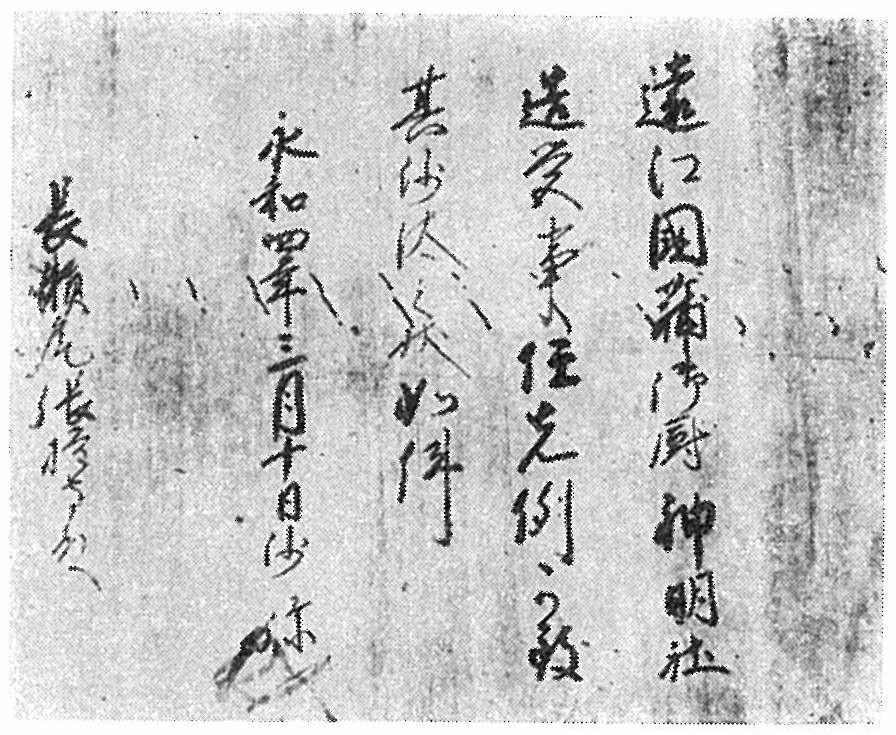 遠江國蒲御厨神明社
造営事、任先例、可致
其沙汰之状如件
永和四年三月十日沙弥
長瀬尾張権守殿